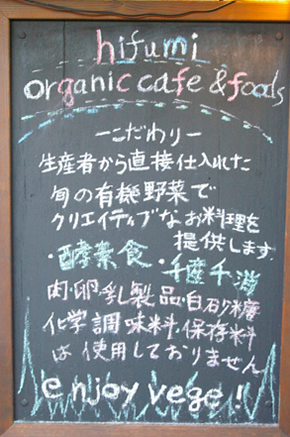 hifumi
organic cafe & foods
ーこだわりー
生産者から直接仕入れた
旬の有機野菜で
クリエイティブなお料理を
提供します
・酵素食・千産千消
肉・卵・乳製品・白砂糖
化学調味料・保存料
は使用しておりません
enjoy vege!